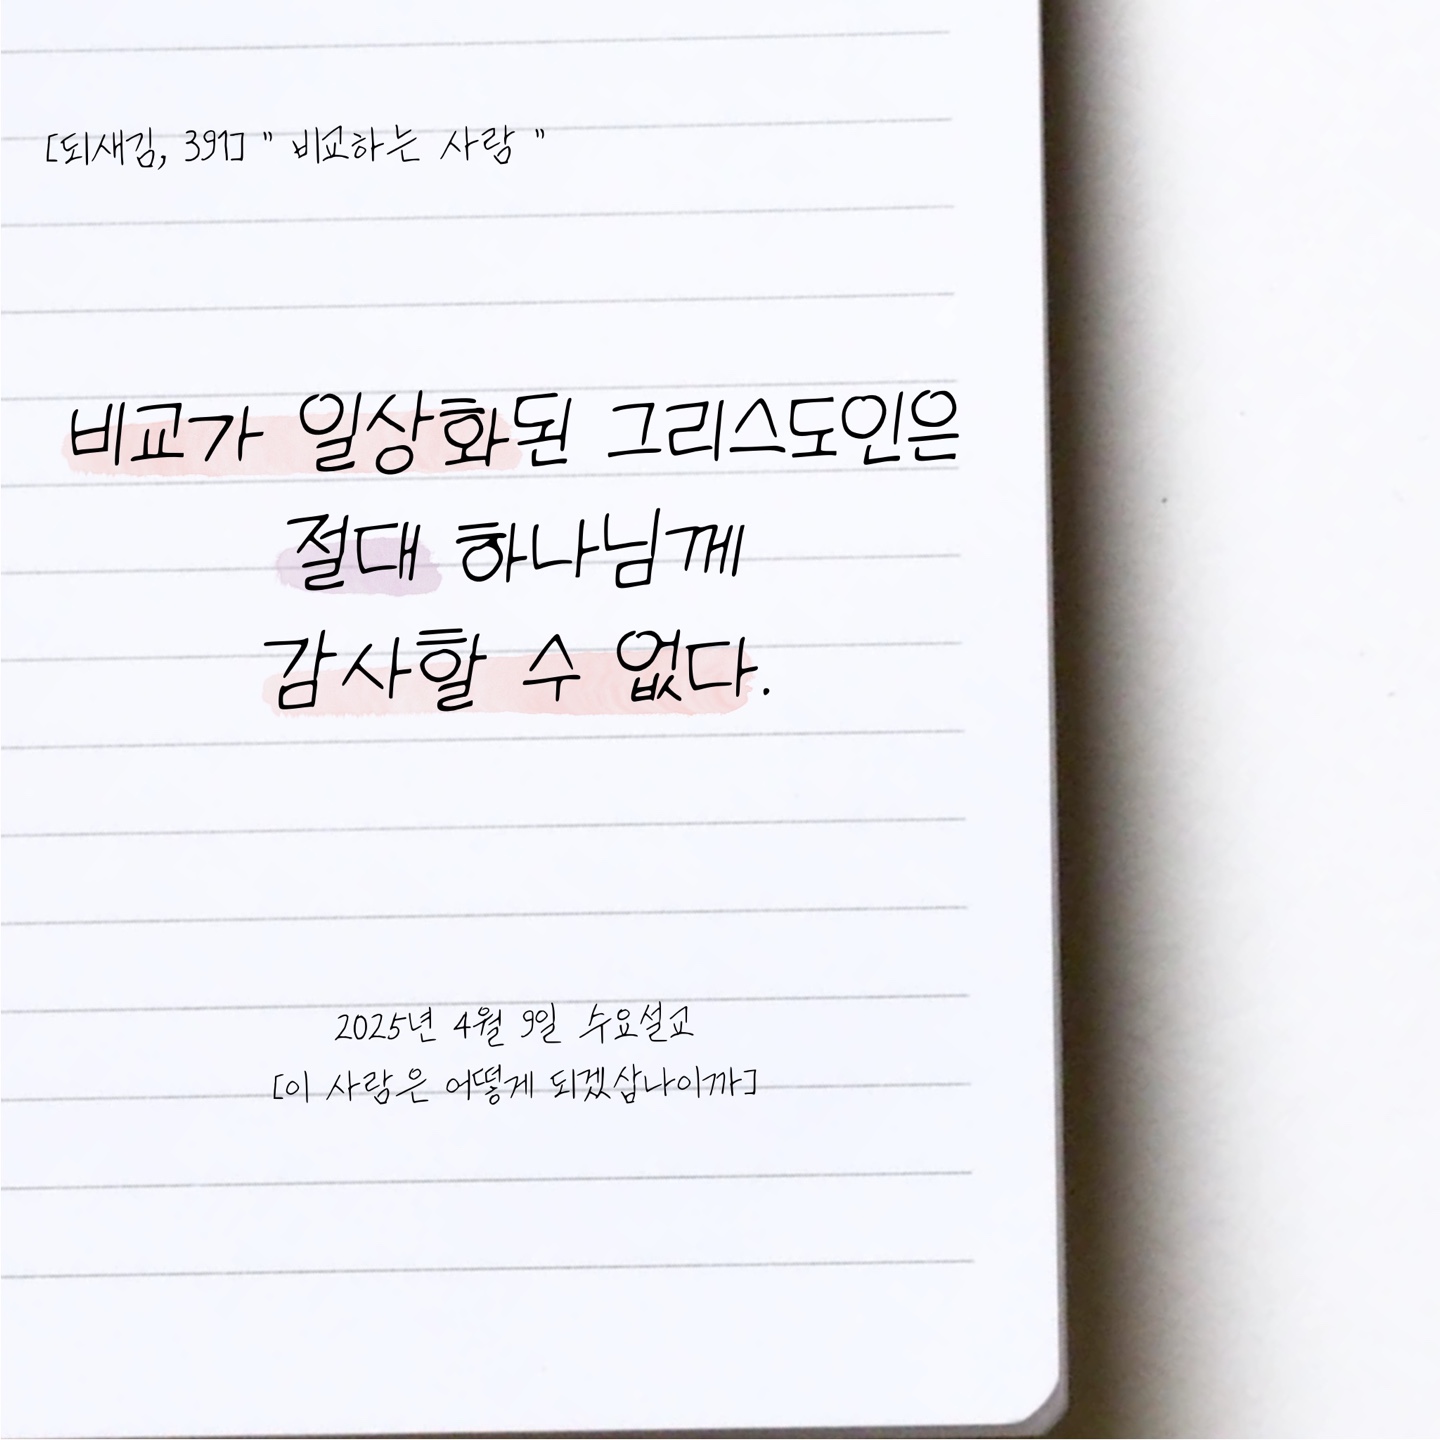 [되새김, 391] " 비교하는 사람 "
비교가 일상화된 그리스도인은
절대 하나님께
감사할 수 없다.
2025년 4월 9일 수요설교
[이 사람은 어떻게 되겠삽나이까]